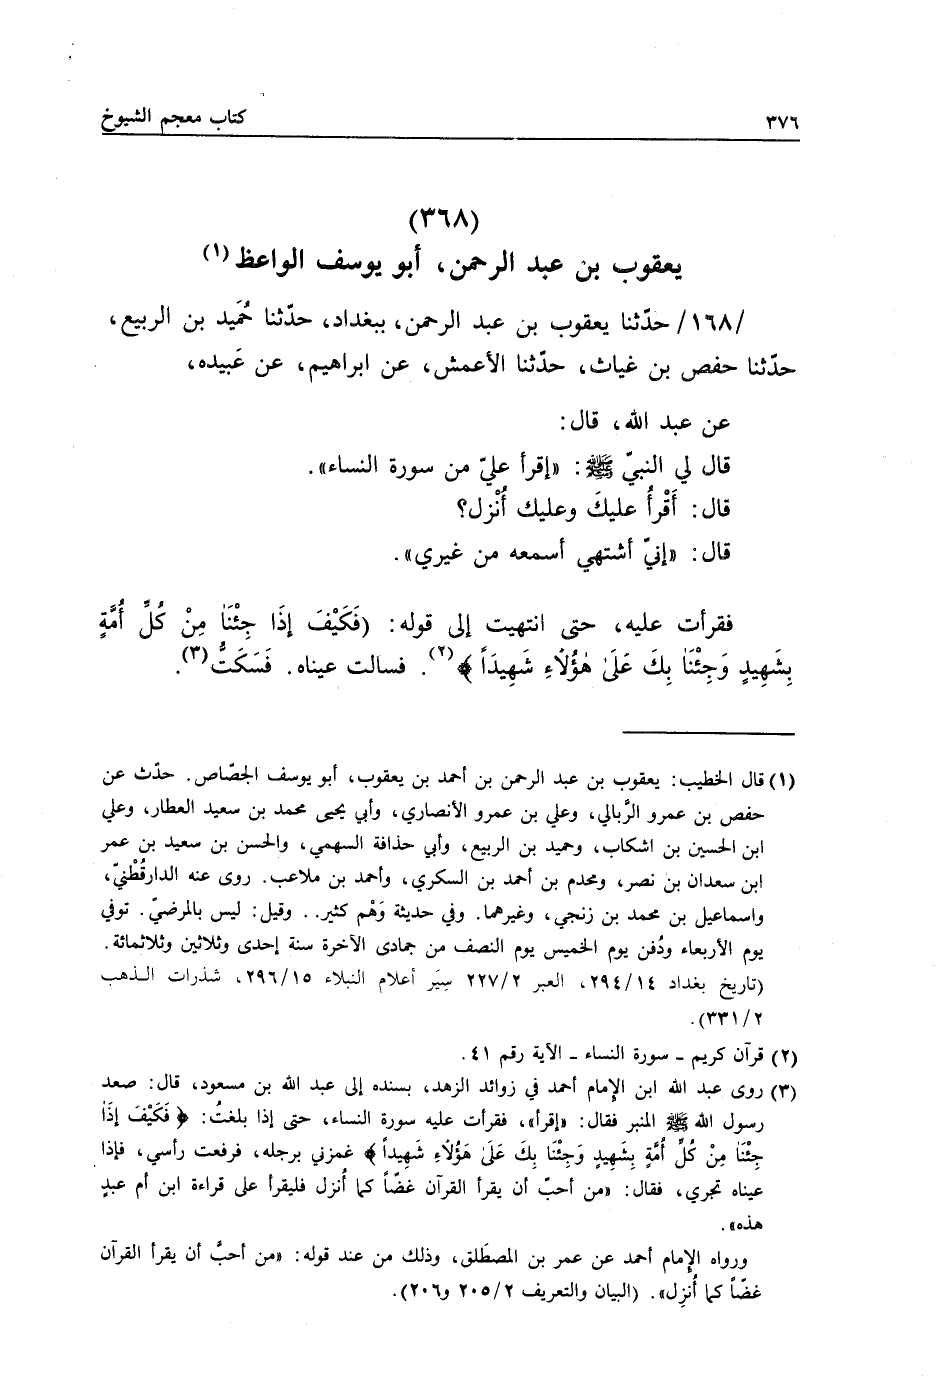 ٣٧٦ كتاب معجم الشيوخ
(٣٦٨)
يعقوب بن عبد الرحمن، أبو يوسف الواعظ(١)
/١٦٨/ حدّثنا يعقوب بن عبد الرحمن، ببغداد، حدّثنا حُمَيد بن الربيع،
حدّثنا حفص بن غياث، حدّثنا الأعمش، عن ابراهيم، عن عَبيده،
عن عبد الله، قال:
قال لي النبيّ ﷺ: «إقرأ عليّ من سورة النساء».
قال: أَقْرأُ عليكَ وعليك أُنْزل؟
قال: «إنيّ أشتهي أسمعه من غيري».
فقرأت عليه، حتى انتهيت إلى قوله: (فَكَيْفَ إذَا جِئْنَا مِنْ كُلِّ أُمَّةٍ
بِشَهِيدٍ وَجِئْنَا بِكَ عَلَىٰ هٰؤُلَاءِ شَهِيدَاً ﴾(٢). فسالت عيناه. فَسَكَتُّ(٣).
(١) قال الخطيب: يعقوب بن عبد الرحمن بن أحمد بن يعقوب، أبو يوسف الجصّاص. حدّث عن
حفص بن عمرو الرَّبالي، وعلي بن عمرو الأنصاري، وأبي يحيى محمد بن سعيد العطار، وعلي
ابن الحسين بن اشكاب، وحميد بن الربيع، وأبي حذافة السهمي، والحسن بن سعيد بن عمر
ابن سعدان بن نصر، ومحدم بن أحمد بن السكري، وأحمد بن ملاعب. روى عنه الدارقُطْنيّ،
واسماعيل بن محمد بن زنجي، وغيرهما. وفي حديثة وَهْم كثير.. وقيل: ليس بالمرضيّ. توفي
يوم الأربعاء ودُفن يوم الخميس يوم النصف من جمادى الآخرة سنة إحدى وثلاثين وثلاثمائة.
(تاريخ بغداد ٢٩٤/١٤، العبر ٢٢٧/٢ سِيَر أعلام النبلاء ٢٩٦/١٥، شذرات الذهب
٣٣١/٢).
(٢) قرآن كريم - سورة النساء - الآية رقم ٤١.
(٣) روى عبد الله ابن الإمام أحمد في زوائد الزهد، بسنده إلى عبد الله بن مسعود، قال: صعد
رسول الله ﷺ المنبر فقال: «إقرأ»، فقرأت عليه سورة النساء، حتى إذا بلغتُ: ﴿ فَكَيْفَ إذَا
جِئْنَا مِنْ كُلِّ أُمَّةٍ بِشَهِيدٍ وَجِئْنَا بِكَ عَلَىٰ هَؤُلَاءِ شَهِيداً ﴾ غمزني برجله، فرفعت رأسي، فإذا
عيناه تجري، فقال: «من أحبّ أن يقرأ القرآن غضّاً كما أُنزل فليقرأ على قراءة ابن أم عبدٍ
هذه».
ورواه الإمام أحمد عن عمر بن المصطَلق، وذلك من عند قوله: «من أحبَّ أن يقرأ القرآن
غضّاً كما أُنزِل». (البيان والتعريف ٢٠٥/٢ و٢٠٦).